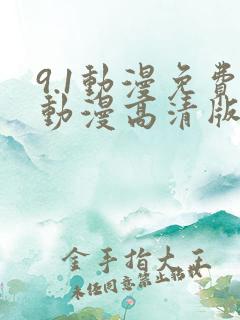 9.1動漫免費
動漫高清版
金手指大王
未任同意禁止轉載